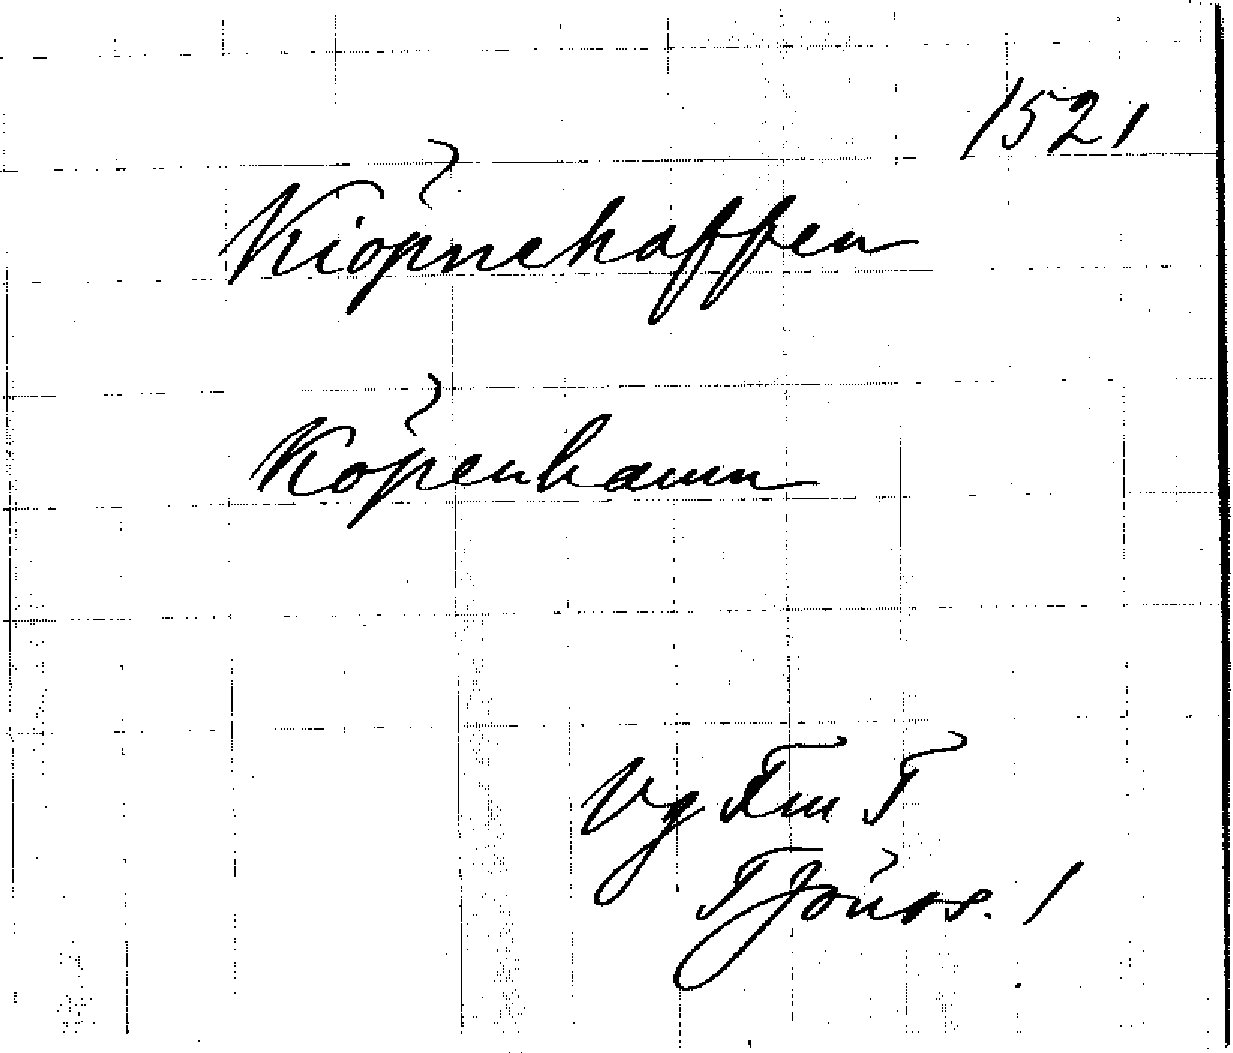 1521
Kiöpnehaffen
Köpenhamn
Vg Fm T